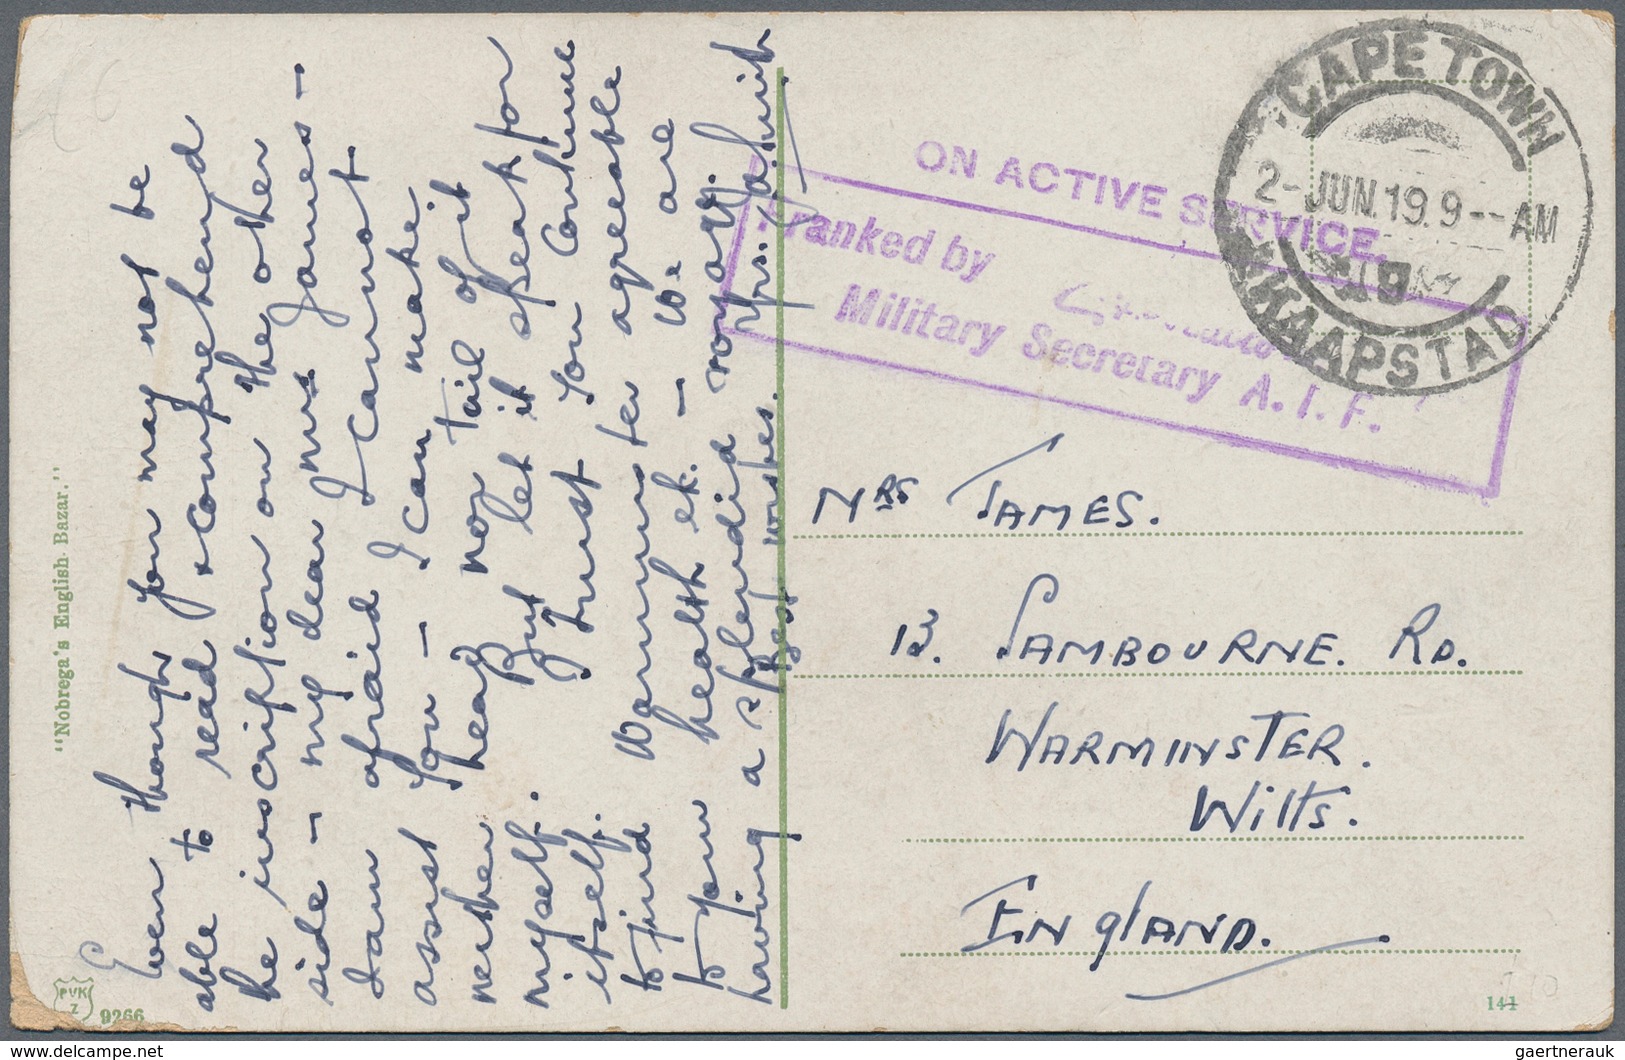 "Nobrega's English Bazar."
Even though you may not be
able to read & comprehend
the inscription on the other
side – my dear Mrs James –
I am afraid I cannot
assist you – I can make
neither head nor tail of it
myself. But let it speak for
itself. I trust you continue
to find Warminster agreeable
to your health etc. – We are
having a splendid voyage.
Best wishes.
PVK
Z
9266
CAPE TOWN
2-JUN.19.9--AM
19
KAAPSTAD
ON ACTIVE SERVICE.
Franked by
Military Secretary A.I.F.
MRS JAMES.
13. SAMBOURNE. RD.
WARMINSTER.
Wilts.
ENglAND.
141
gaertnerauk